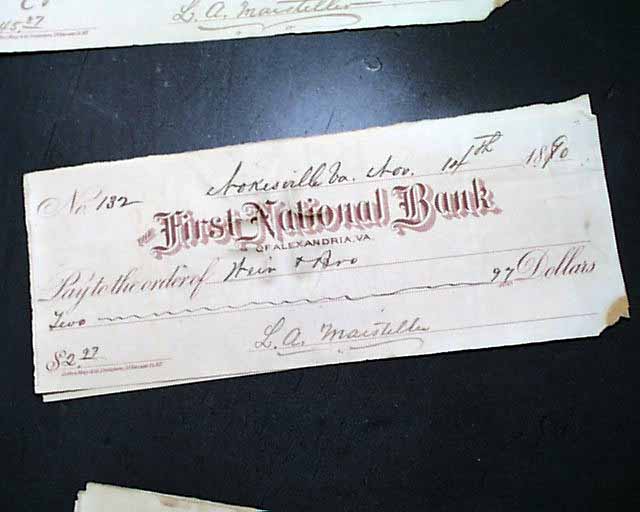 45.27
L. A. Marsteller
No. 132
Nokesville Va. Nov. 14th 1890
First National Bank
OF ALEXANDRIA, VA.
Pay to the order of Weir & Bro
Two 97 Dollars
$2.97
L. A. Marsteller